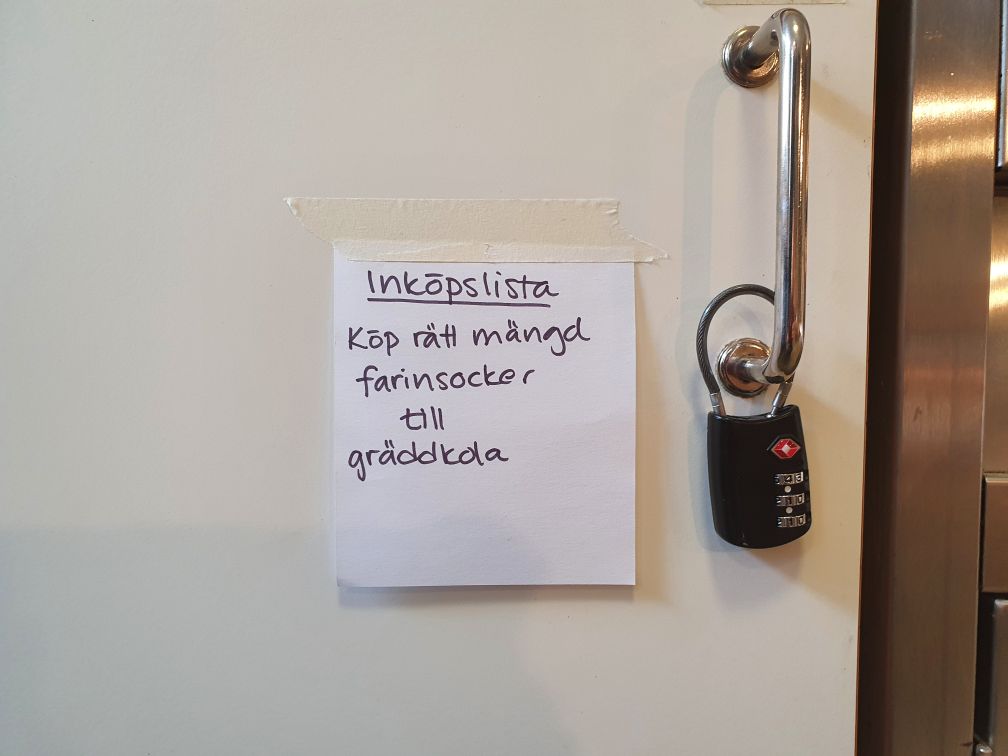 Inköpslista
Köp rätt mängd
farinsocker
till
gräddkola